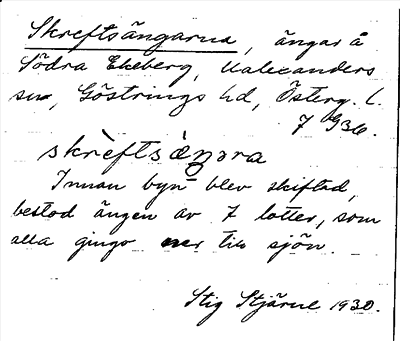 Skreftsängarna, ängar å
Södra Ekeberg, Ualexanders
sn, Göstrings hd, Österg. l.
7 936.
skrèftsàŋara
Innan byn blev skiftad,
bestod ängen av 7 lotter, som
alla gingo ner till sjön.
Stig Stjärne 1930.